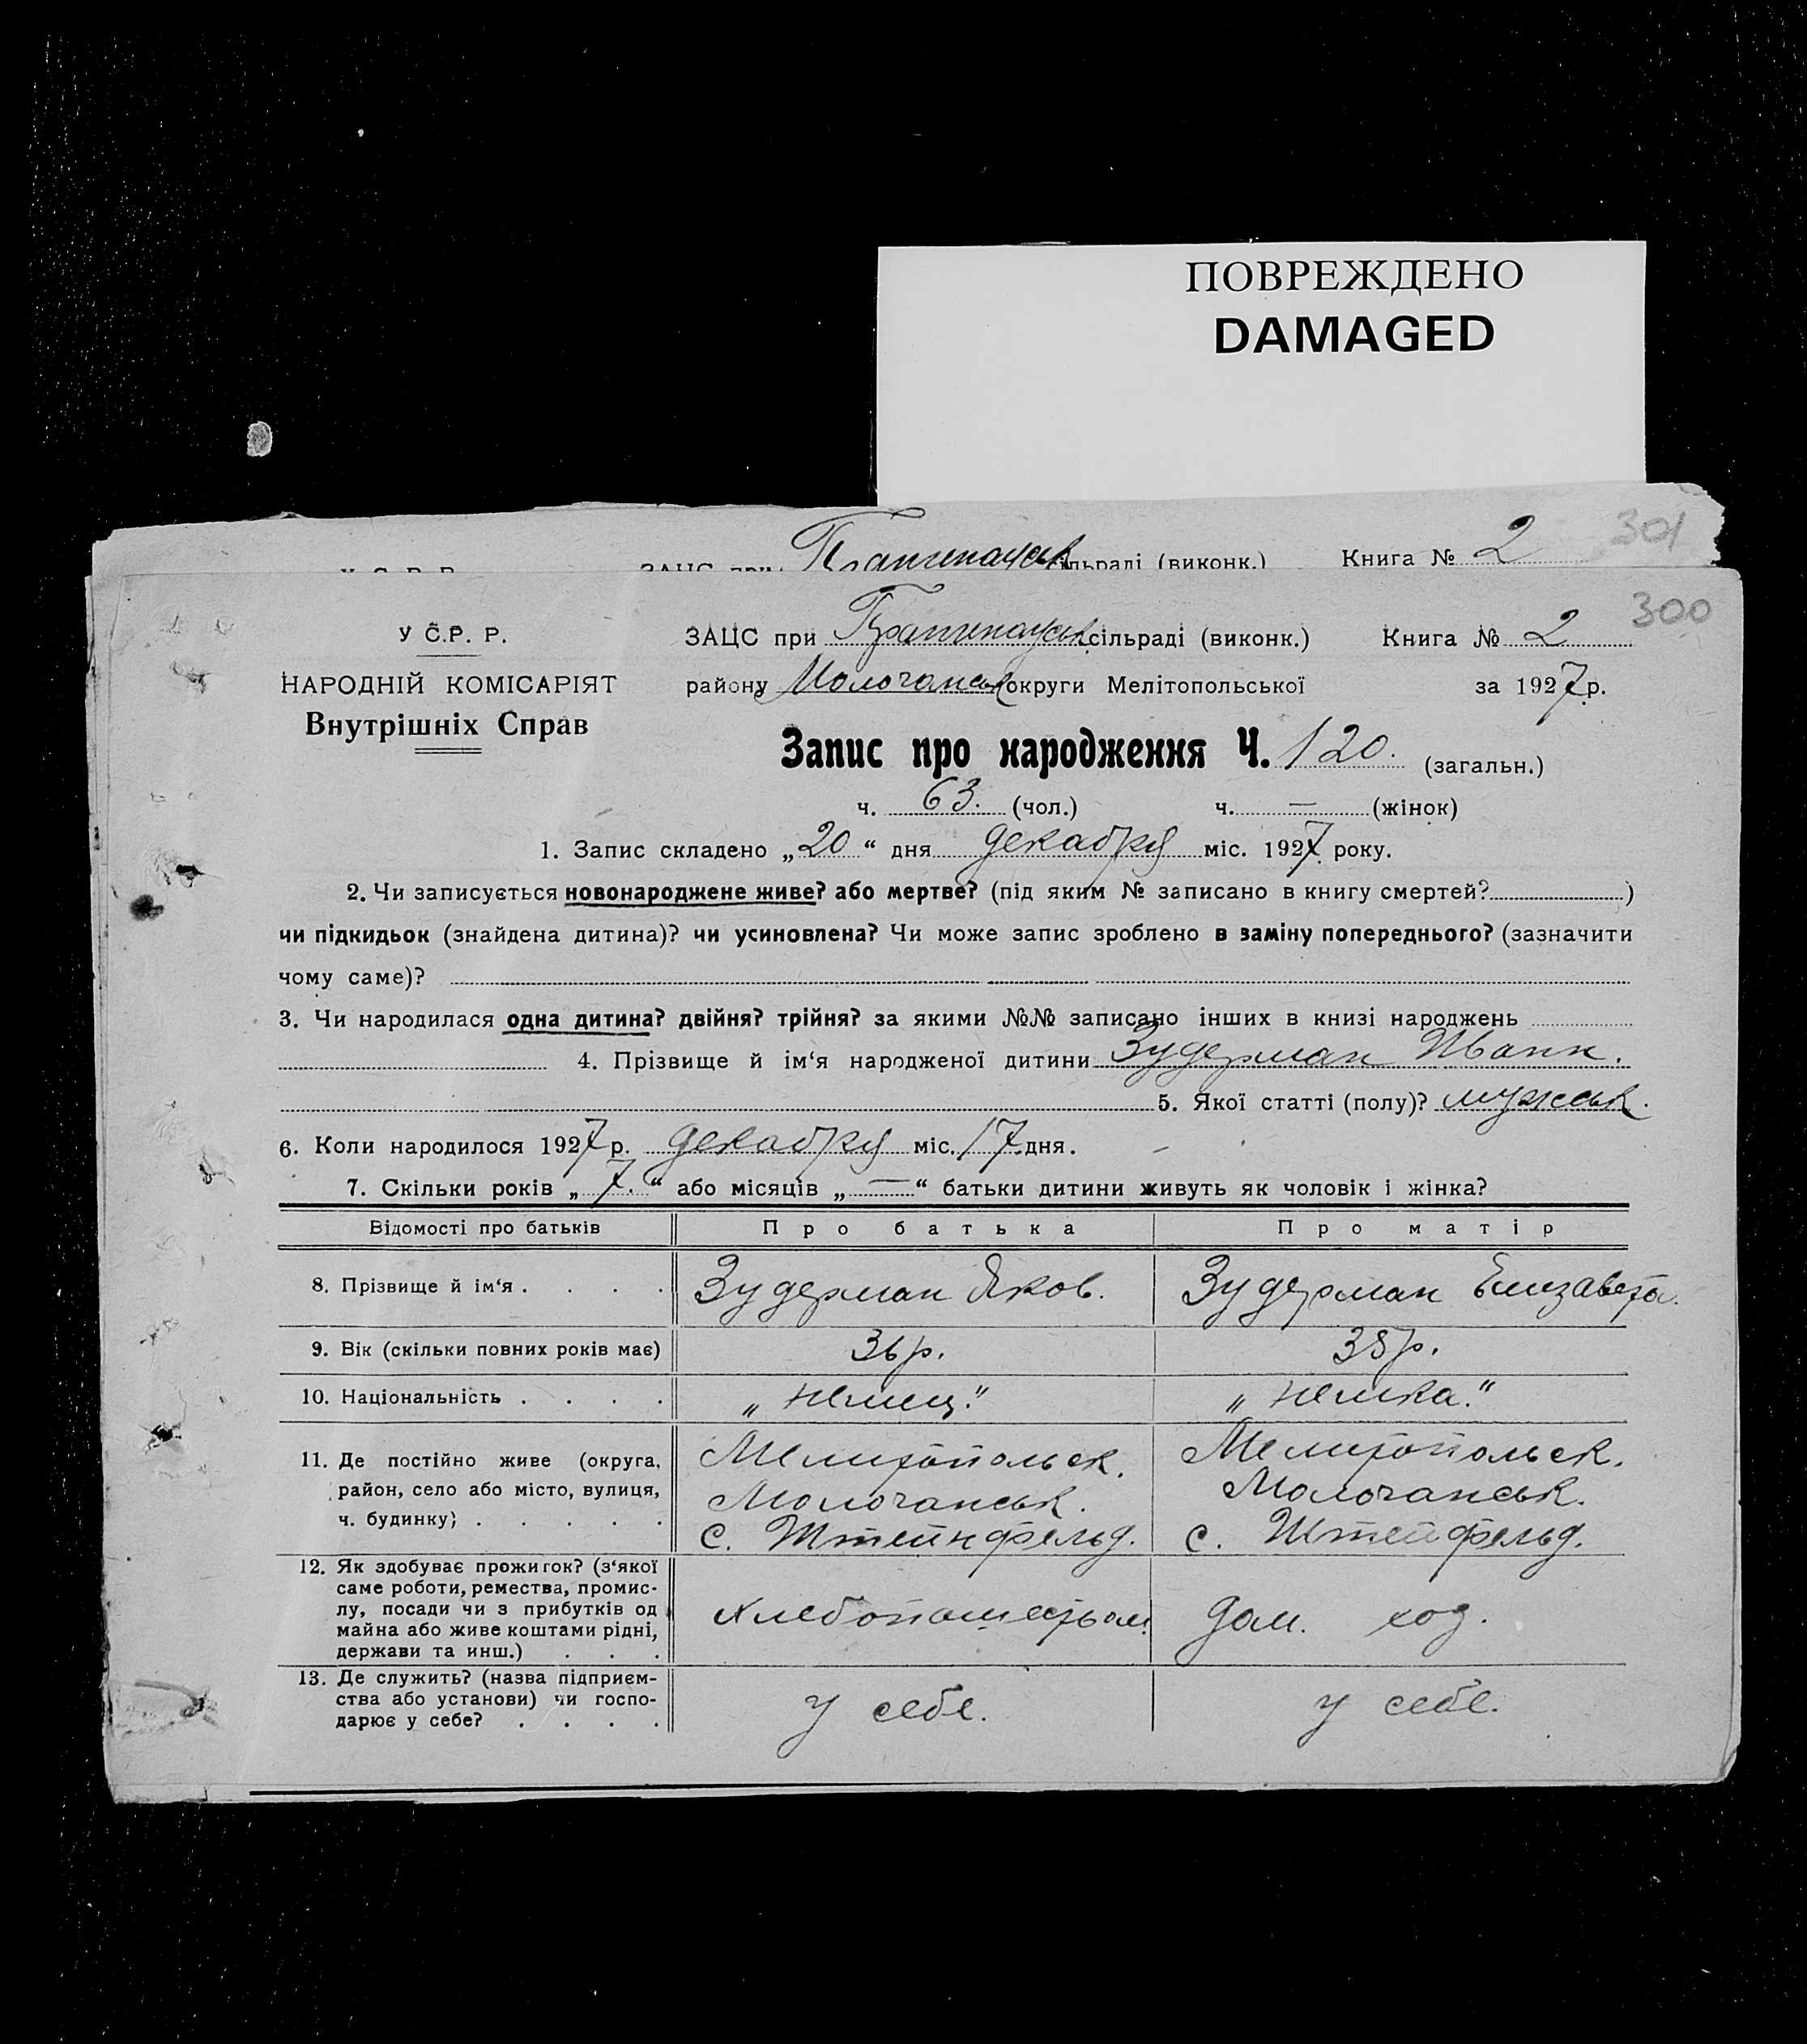 ПОВРЕЖДЕНО
DAMAGED
301
ЗАЦС при сільраді (виконк.) Книга № 2
300
У С.Р. Р. ЗАЦС при сільраді (виконк.) Книга № 2
НАРОДНІЙ КОМІСАРІЯТ району Молочанськ округи Мелітопольської за 1927 р.
Внутрішніх Справ
Запис про народження Ч. 120. (загальн.)
ч. 63. (чол.) ч. — (жінок)
1. Запис складено „20“ дня декабря міс. 1927 року.
2. Чи записується новонароджене живе? або мертве? (під яким № записано в книгу смертей? )
чи підкидьок (знайдена дитина)? чи усиновлена? Чи може запис зроблено в заміну попереднього? (зазначити
чому саме)?
3. Чи народилася одна дитина? двійня? трійня? за якими №№ записано інших в книзі народжень
4. Прізвище й ім‘я народженої дитини Зудерман Иванн.
5. Якої статті (полу)? мужськ.
6. Коли народилося 1927 р. декабря міс. 17 дня.
7. Скільки років „7.“ або місяців „—“ батьки дитини живуть як чоловік і жінка?
Відомості про батьків Про батька Про матір
8. Прізвище й ім‘я . . . . Зудерман Яков. Зудерман Елизавета.
9. Вік (скільки повних років має) 36 р. 35 р.
10. Національність . . . . „немец.“ „немка.“
11. Де постійно живе (округа, Мелитопольск. Мелитопольск.
район, село або місто, вулиця, Молочанськ. Молочанськ.
ч. будинку) . . . . . с. Штейнфельд. с. Штейфельд.
12. Як здобуває прожиток? (з‘якої
саме роботи, ремества, промис-
лу, посади чи з прибутків од хлебопашеством Дом. хоз.
майна або живе коштами рідні,
держави та инш.) . . .
13. Де служить? (назва підприєм-
ства або установи) чи госпо- у себе. у себе.
дарює у себе? . . . .